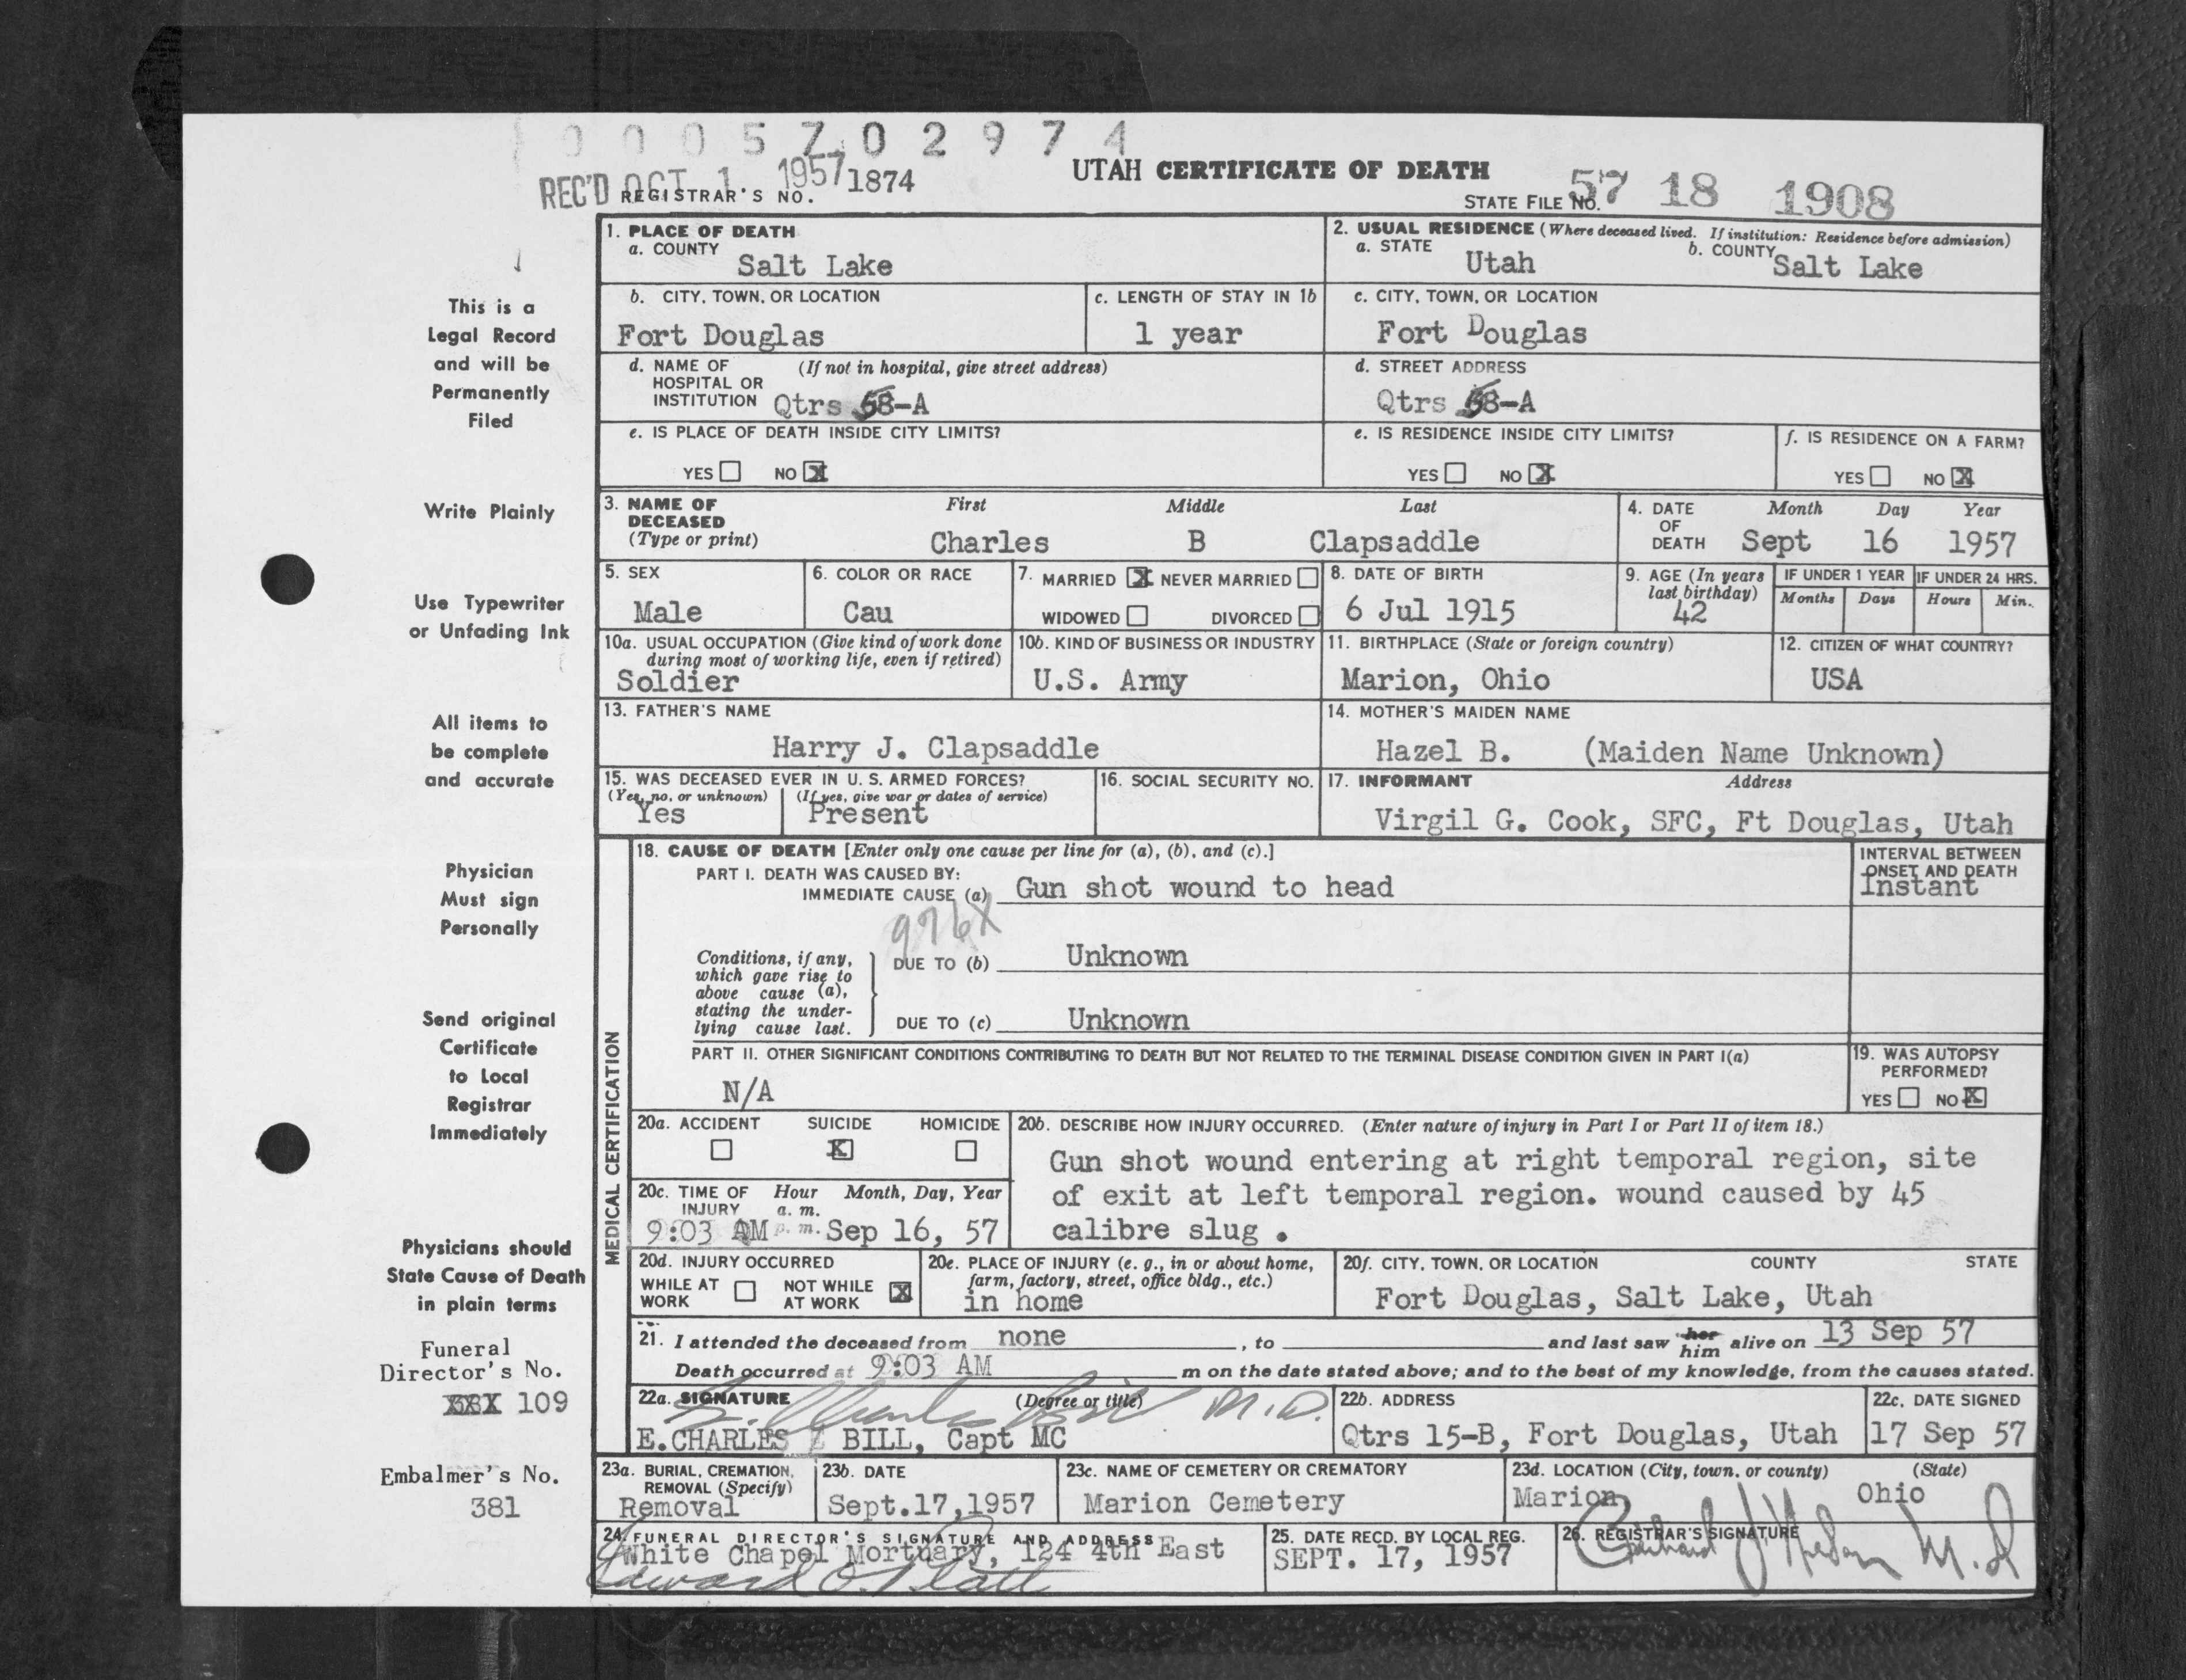 0 0 0 5 7 0 2 9 7 4
REC'D OCT 1 1957
REGISTRAR'S NO. 1874
UTAH CERTIFICATE OF DEATH
STATE FILE NO. 57 18 1908
This is a
Legal Record
and will be
Permanently
Filed
Write Plainly
Use Typewriter
or Unfading Ink
All items to
be complete
and accurate
Physician
Must sign
Personally
Send original
Certificate
to Local
Registrar
Immediately
Physicians should
State Cause of Death
in plain terms
Funeral
Director's No.
109
Embalmer's No.
381
1. PLACE OF DEATH
a. COUNTY
Salt Lake
2. USUAL RESIDENCE (Where deceased lived. If institution: Residence before admission)
a. STATE Utah b. COUNTY Salt Lake
b. CITY, TOWN, OR LOCATION
Fort Douglas
c. LENGTH OF STAY IN 1b
1 year
c. CITY, TOWN, OR LOCATION
Fort Douglas
d. NAME OF (If not in hospital, give street address)
HOSPITAL OR
INSTITUTION Qtrs 58-A
d. STREET ADDRESS
Qtrs 58-A
e. IS PLACE OF DEATH INSIDE CITY LIMITS?
YES NO X
e. IS RESIDENCE INSIDE CITY LIMITS?
YES NO X
f. IS RESIDENCE ON A FARM?
YES NO X
3. NAME OF First Middle Last
DECEASED
(Type or print) Charles B Clapsaddle
4. DATE Month Day Year
OF
DEATH Sept 16 1957
5. SEX
Male
6. COLOR OR RACE
Cau
7. MARRIED X NEVER MARRIED
WIDOWED DIVORCED
8. DATE OF BIRTH
6 Jul 1915
9. AGE (In years
last birthday)
42
IF UNDER 1 YEAR
Months Days
IF UNDER 24 HRS.
Hours Min.
10a. USUAL OCCUPATION (Give kind of work done
during most of working life, even if retired)
Soldier
10b. KIND OF BUSINESS OR INDUSTRY
U.S. Army
11. BIRTHPLACE (State or foreign country)
Marion, Ohio
12. CITIZEN OF WHAT COUNTRY?
USA
13. FATHER'S NAME
Harry J. Clapsaddle
14. MOTHER'S MAIDEN NAME
Hazel B. (Maiden Name Unknown)
15. WAS DECEASED EVER IN U. S. ARMED FORCES?
(Yes, no, or unknown) (If yes, give war or dates of service)
Yes Present
16. SOCIAL SECURITY NO.
17. INFORMANT Address
Virgil G. Cook, SFC, Ft Douglas, Utah
MEDICAL CERTIFICATION
18. CAUSE OF DEATH [Enter only one cause per line for (a), (b), and (c).]
PART I. DEATH WAS CAUSED BY:
IMMEDIATE CAUSE (a) Gun shot wound to head
INTERVAL BETWEEN
ONSET AND DEATH
Instant
976X
Conditions, if any,
which gave rise to
above cause (a),
stating the under-
lying cause last.
DUE TO (b) Unknown
DUE TO (c) Unknown
PART II. OTHER SIGNIFICANT CONDITIONS CONTRIBUTING TO DEATH BUT NOT RELATED TO THE TERMINAL DISEASE CONDITION GIVEN IN PART I(a)
N/A
19. WAS AUTOPSY
PERFORMED?
YES NO X
20a. ACCIDENT SUICIDE HOMICIDE
X
20b. DESCRIBE HOW INJURY OCCURRED. (Enter nature of injury in Part I or Part II of item 18.)
Gun shot wound entering at right temporal region, site
of exit at left temporal region. wound caused by 45
calibre slug .
20c. TIME OF Hour Month, Day, Year
INJURY a. m.
9:03 AM p. m. Sep 16, 57
20d. INJURY OCCURRED
WHILE AT WORK NOT WHILE AT WORK X
20e. PLACE OF INJURY (e. g., in or about home,
farm, factory, street, office bldg., etc.)
in home
20f. CITY, TOWN, OR LOCATION COUNTY STATE
Fort Douglas, Salt Lake, Utah
21. I attended the deceased from none , to and last saw her him alive on 13 Sep 57
Death occurred at 9:03 AM m on the date stated above; and to the best of my knowledge, from the causes stated.
22a. SIGNATURE (Degree or title) M.D.
E.CHARLES BILL, Capt MC
22b. ADDRESS
Qtrs 15-B, Fort Douglas, Utah
22c. DATE SIGNED
17 Sep 57
23a. BURIAL, CREMATION,
REMOVAL (Specify)
Removal
23b. DATE
Sept.17,1957
23c. NAME OF CEMETERY OR CREMATORY
Marion Cemetery
23d. LOCATION (City, town, or county) (State)
Marion, Ohio
24. FUNERAL DIRECTOR'S SIGNATURE AND ADDRESS
White Chapel Mortuary, 124 4th East
Edward O. Platt
25. DATE RECD. BY LOCAL REG.
SEPT. 17, 1957
26. REGISTRAR'S SIGNATURE
M.D